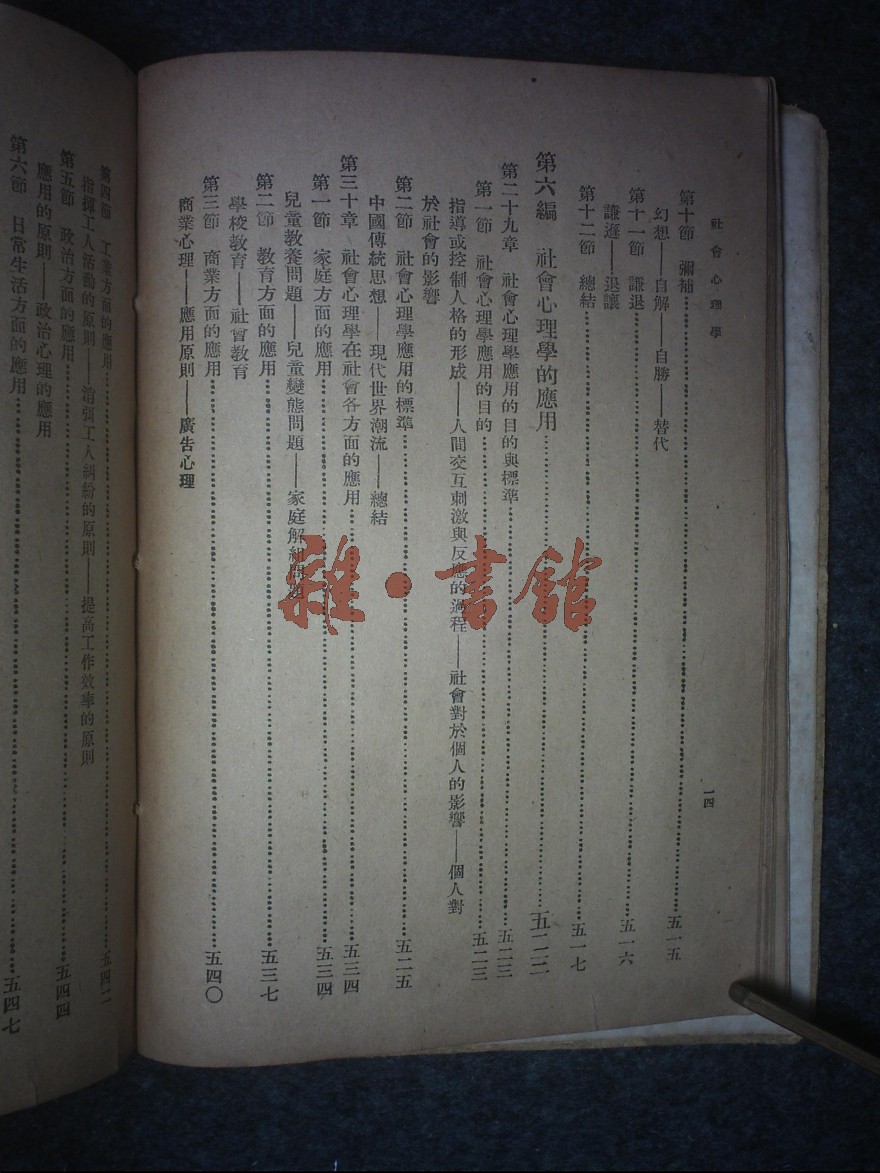 社會心理學
一四
第十節 彌補……五一五
幻想——自解——自勝——替代
第十一節 謙退……五一六
謙遜——退讓
第十二節 總結……五一七
第六編 社會心理學的應用……五二三
第二十九章 社會心理學應用的目的與標準……五二三
第一節 社會心理學應用的目的……五二三
指導或控制人格的形成——人間交互刺激與反應的過程——社會對於個人的影響——個人對
於社會的影響
第二節 社會心理學應用的標準……五二五
中國傳統思想——現代世界潮流——總結
第三十章 社會心理學在社會各方面的應用……五三四
第一節 家庭方面的應用……五三四
兒童教養問題——兒童變態問題——家庭解組問題
第二節 教育方面的應用……五三七
學校教育——社會教育
第三節 商業方面的應用……五四〇
商業心理——應用原則——廣告心理
第四節 工業方面的應用……五四二
指揮工人活動的原則——消弭工人糾紛的原則——提高工作效率的原則
第五節 政治方面的應用……五四四
應用的原則——政治心理的應用
第六節 日常生活方面的應用……五四七
雜·書館